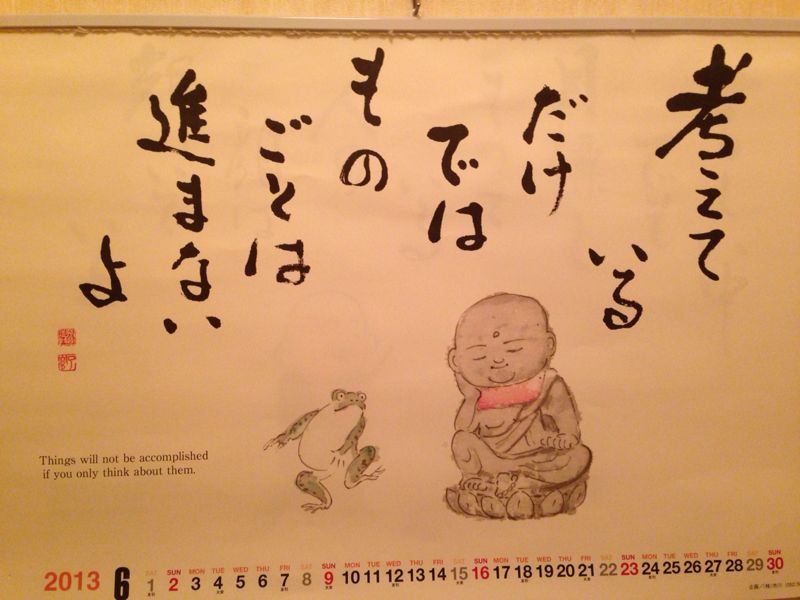 考えて
いる
だけ
では
もの
ごとは
進まない
よ
Things will not be accomplished
if you only think about them.
2013 6
SAT SUN MON TUE WED THU FRI SAT SUN MON TUE WED THU FRI SAT SUN MON TUE WED THU FRI SAT SUN MON TUE WED THU FRI SAT SUN
1 2 3 4 5 6 7 8 9 10 11 12 13 14 15 16 17 18 19 20 21 22 23 24 25 26 27 28 29 30